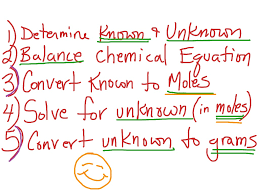 1) Determine Known & Unknown
2) Balance Chemical Equation
3) Convert Known to Moles
4) Solve for unknown (in moles)
5) Convert unknown to grams